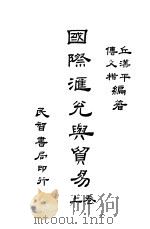 丘漢平
傅文楷 編著
國際滙兌與貿易
上卷
民智書局印行